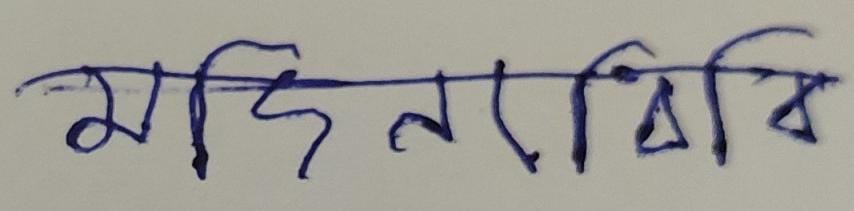 মদিনা বিবি